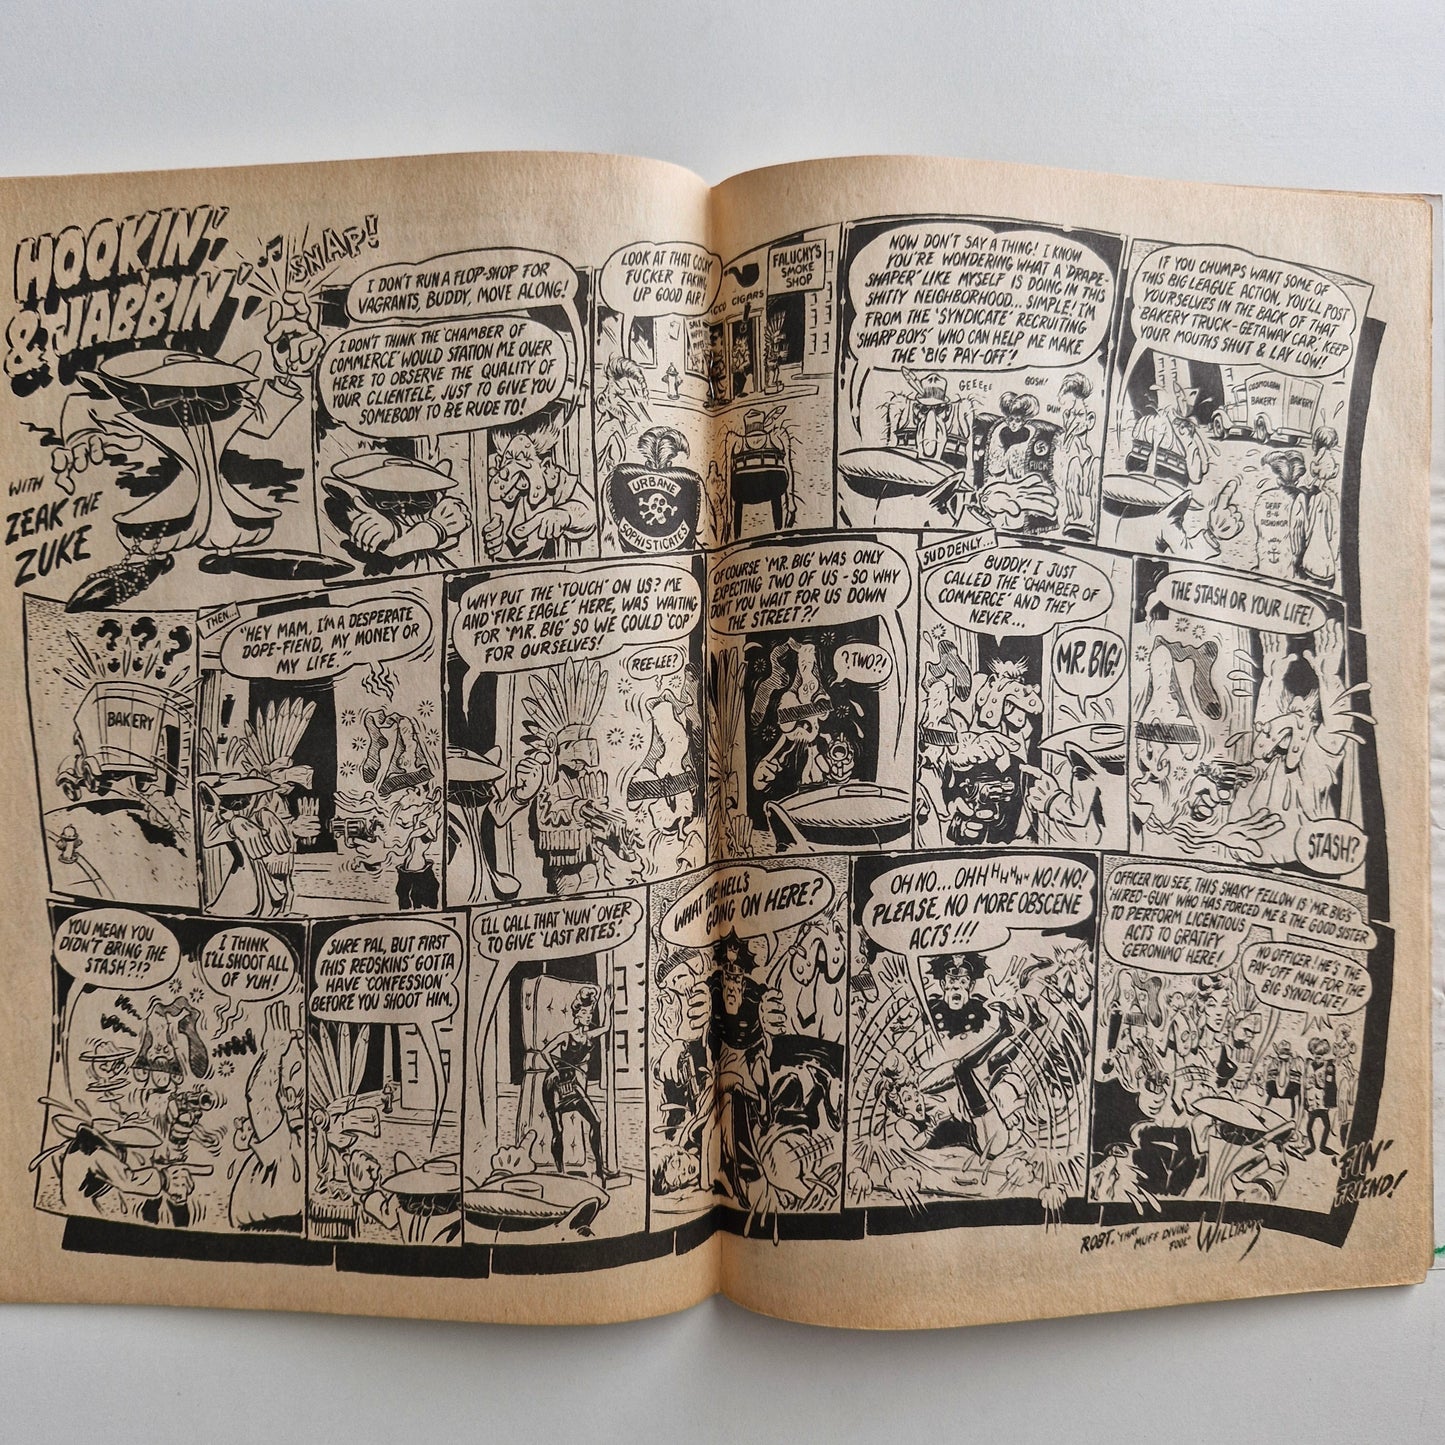 HOOKIN'
& JABBIN'
SNAP!
WITH
ZEAK THE
ZUKE
I DON'T RUN A FLOP-SHOP FOR
VAGRANTS, BUDDY, MOVE ALONG!
I DON'T THINK THE 'CHAMBER OF
COMMERCE' WOULD STATION ME OVER
HERE TO OBSERVE THE QUALITY OF
YOUR CLIENTELE, JUST TO GIVE YOU
SOMEBODY TO BE RUDE TO!
LOOK AT THAT COCKY
FUCKER TAKING
UP GOOD AIR!
FALUCHY'S
SMOKE
SHOP
CIGARS
URBANE
SOPHISTICATES
NOW DON'T SAY A THING! I KNOW
YOU'RE WONDERING WHAT A 'DRAPE-
SHAPER' LIKE MYSELF IS DOING IN THIS
SHITTY NEIGHBORHOOD... SIMPLE! I'M
FROM THE 'SYNDICATE' RECRUITING
'SHARP BOYS' WHO CAN HELP ME MAKE
THE 'BIG PAY-OFF'!
GEEEEE
GOSH!
DUH
FUCK
IF YOU CHUMPS WANT SOME OF
THIS BIG LEAGUE ACTION, YOU'LL POST
YOURSELVES IN THE BACK OF THAT
'BAKERY TRUCK-GETAWAY CAR.' KEEP
YOUR MOUTHS SHUT & LAY LOW!
BAKERY
BAKERY
DEAF
B-4
DISHONOR
???
BAKERY
THEN...
"HEY MAM, I'M A DESPERATE
DOPE-FIEND, MY MONEY OR
MY LIFE."
WHY PUT THE 'TOUCH' ON US? ME
AND 'FIRE EAGLE' HERE, WAS WAITING
FOR 'MR. BIG' SO WE COULD 'COP'
FOR OURSELVES!
REE-LEE?
OF COURSE 'MR. BIG' WAS ONLY
EXPECTING TWO OF US - SO WHY
DON'T YOU WAIT FOR US DOWN
THE STREET?!
? TWO?!
SUDDENLY...
BUDDY! I JUST
CALLED THE 'CHAMBER OF
COMMERCE' AND THEY
NEVER...
MR. BIG!
THE STASH OR YOUR LIFE!
STASH?
YOU MEAN YOU
DIDN'T BRING THE
STASH?!?
I THINK
I'LL SHOOT ALL
OF YUH!
SURE PAL, BUT FIRST
THIS REDSKINS' GOTTA
HAVE 'CONFESSION'
BEFORE YOU SHOOT HIM.
I'LL CALL THAT 'NUN' OVER
TO GIVE 'LAST RITES!'
WHAT THE HELL'S
GOING ON HERE?
OH NO... OHHHHHH NO! NO!
PLEASE, NO MORE OBSCENE
ACTS!!!
OFFICER YOU SEE, THIS SHAKY FELLOW IS 'MR. BIG'S'
'HIRED-GUN' WHO HAS FORCED ME & THE GOOD SISTER
TO PERFORM LICENTIOUS
ACTS TO GRATIFY
'GERONIMO' HERE!
NO OFFICER! HE'S THE
PAY-OFF MAN FOR THE
BIG SYNDICATE!
'FIN'
FRIEND!
ROBT. "THAT
MUFF DIVING
FOOL" WILLIAMS